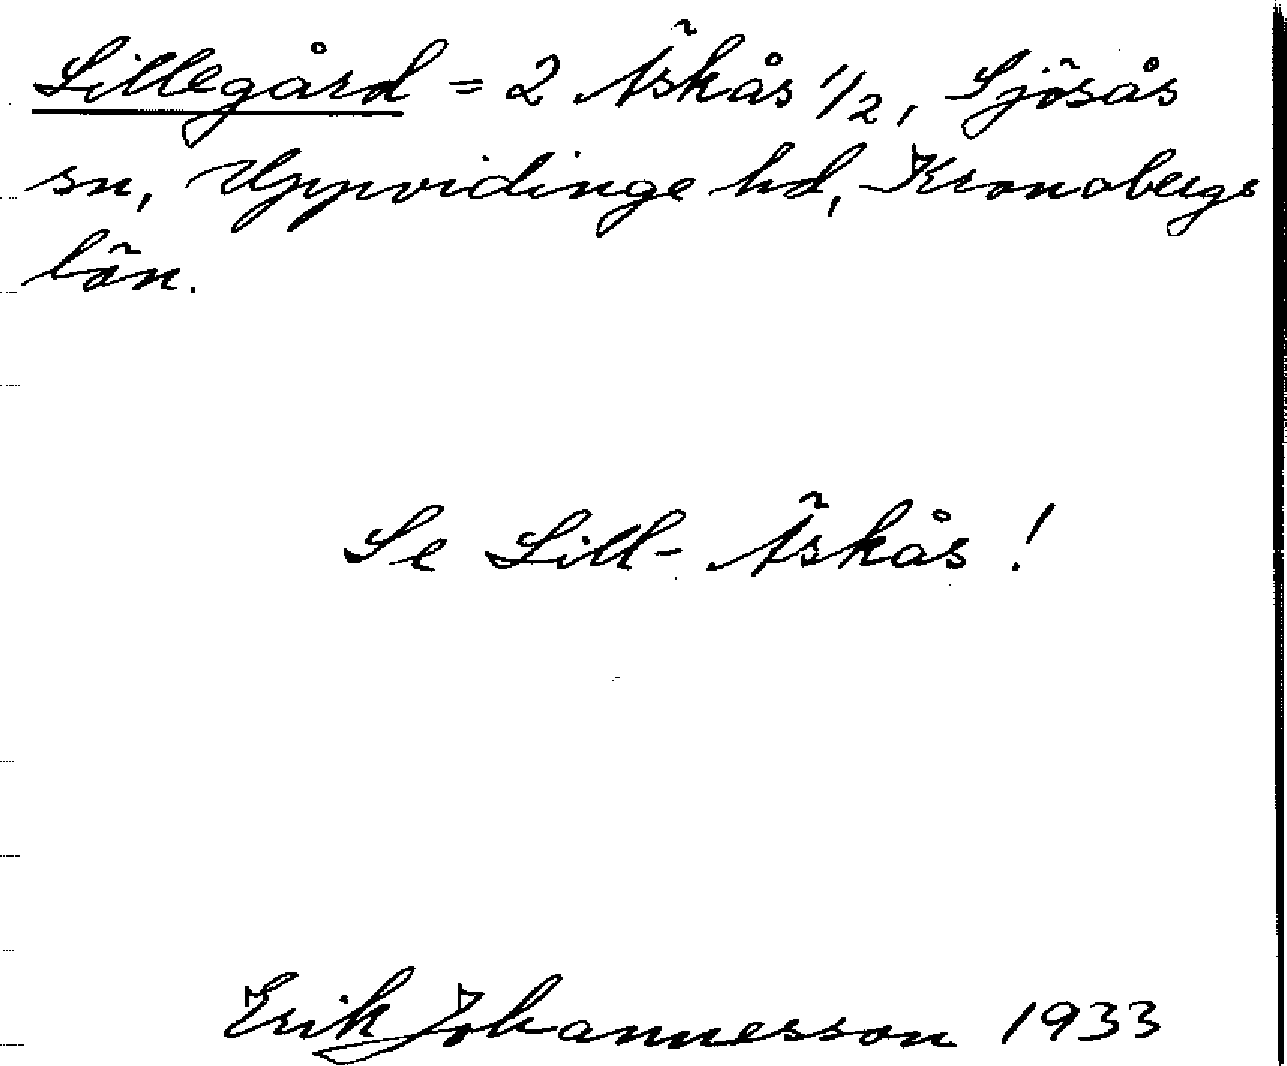 Lillegård = 2 Äskås 1/2, Sjösås
sn, Uppvidinge hd, Kronobergs
län.
Se Lill-Äskås!
Erik Johannesson 1933